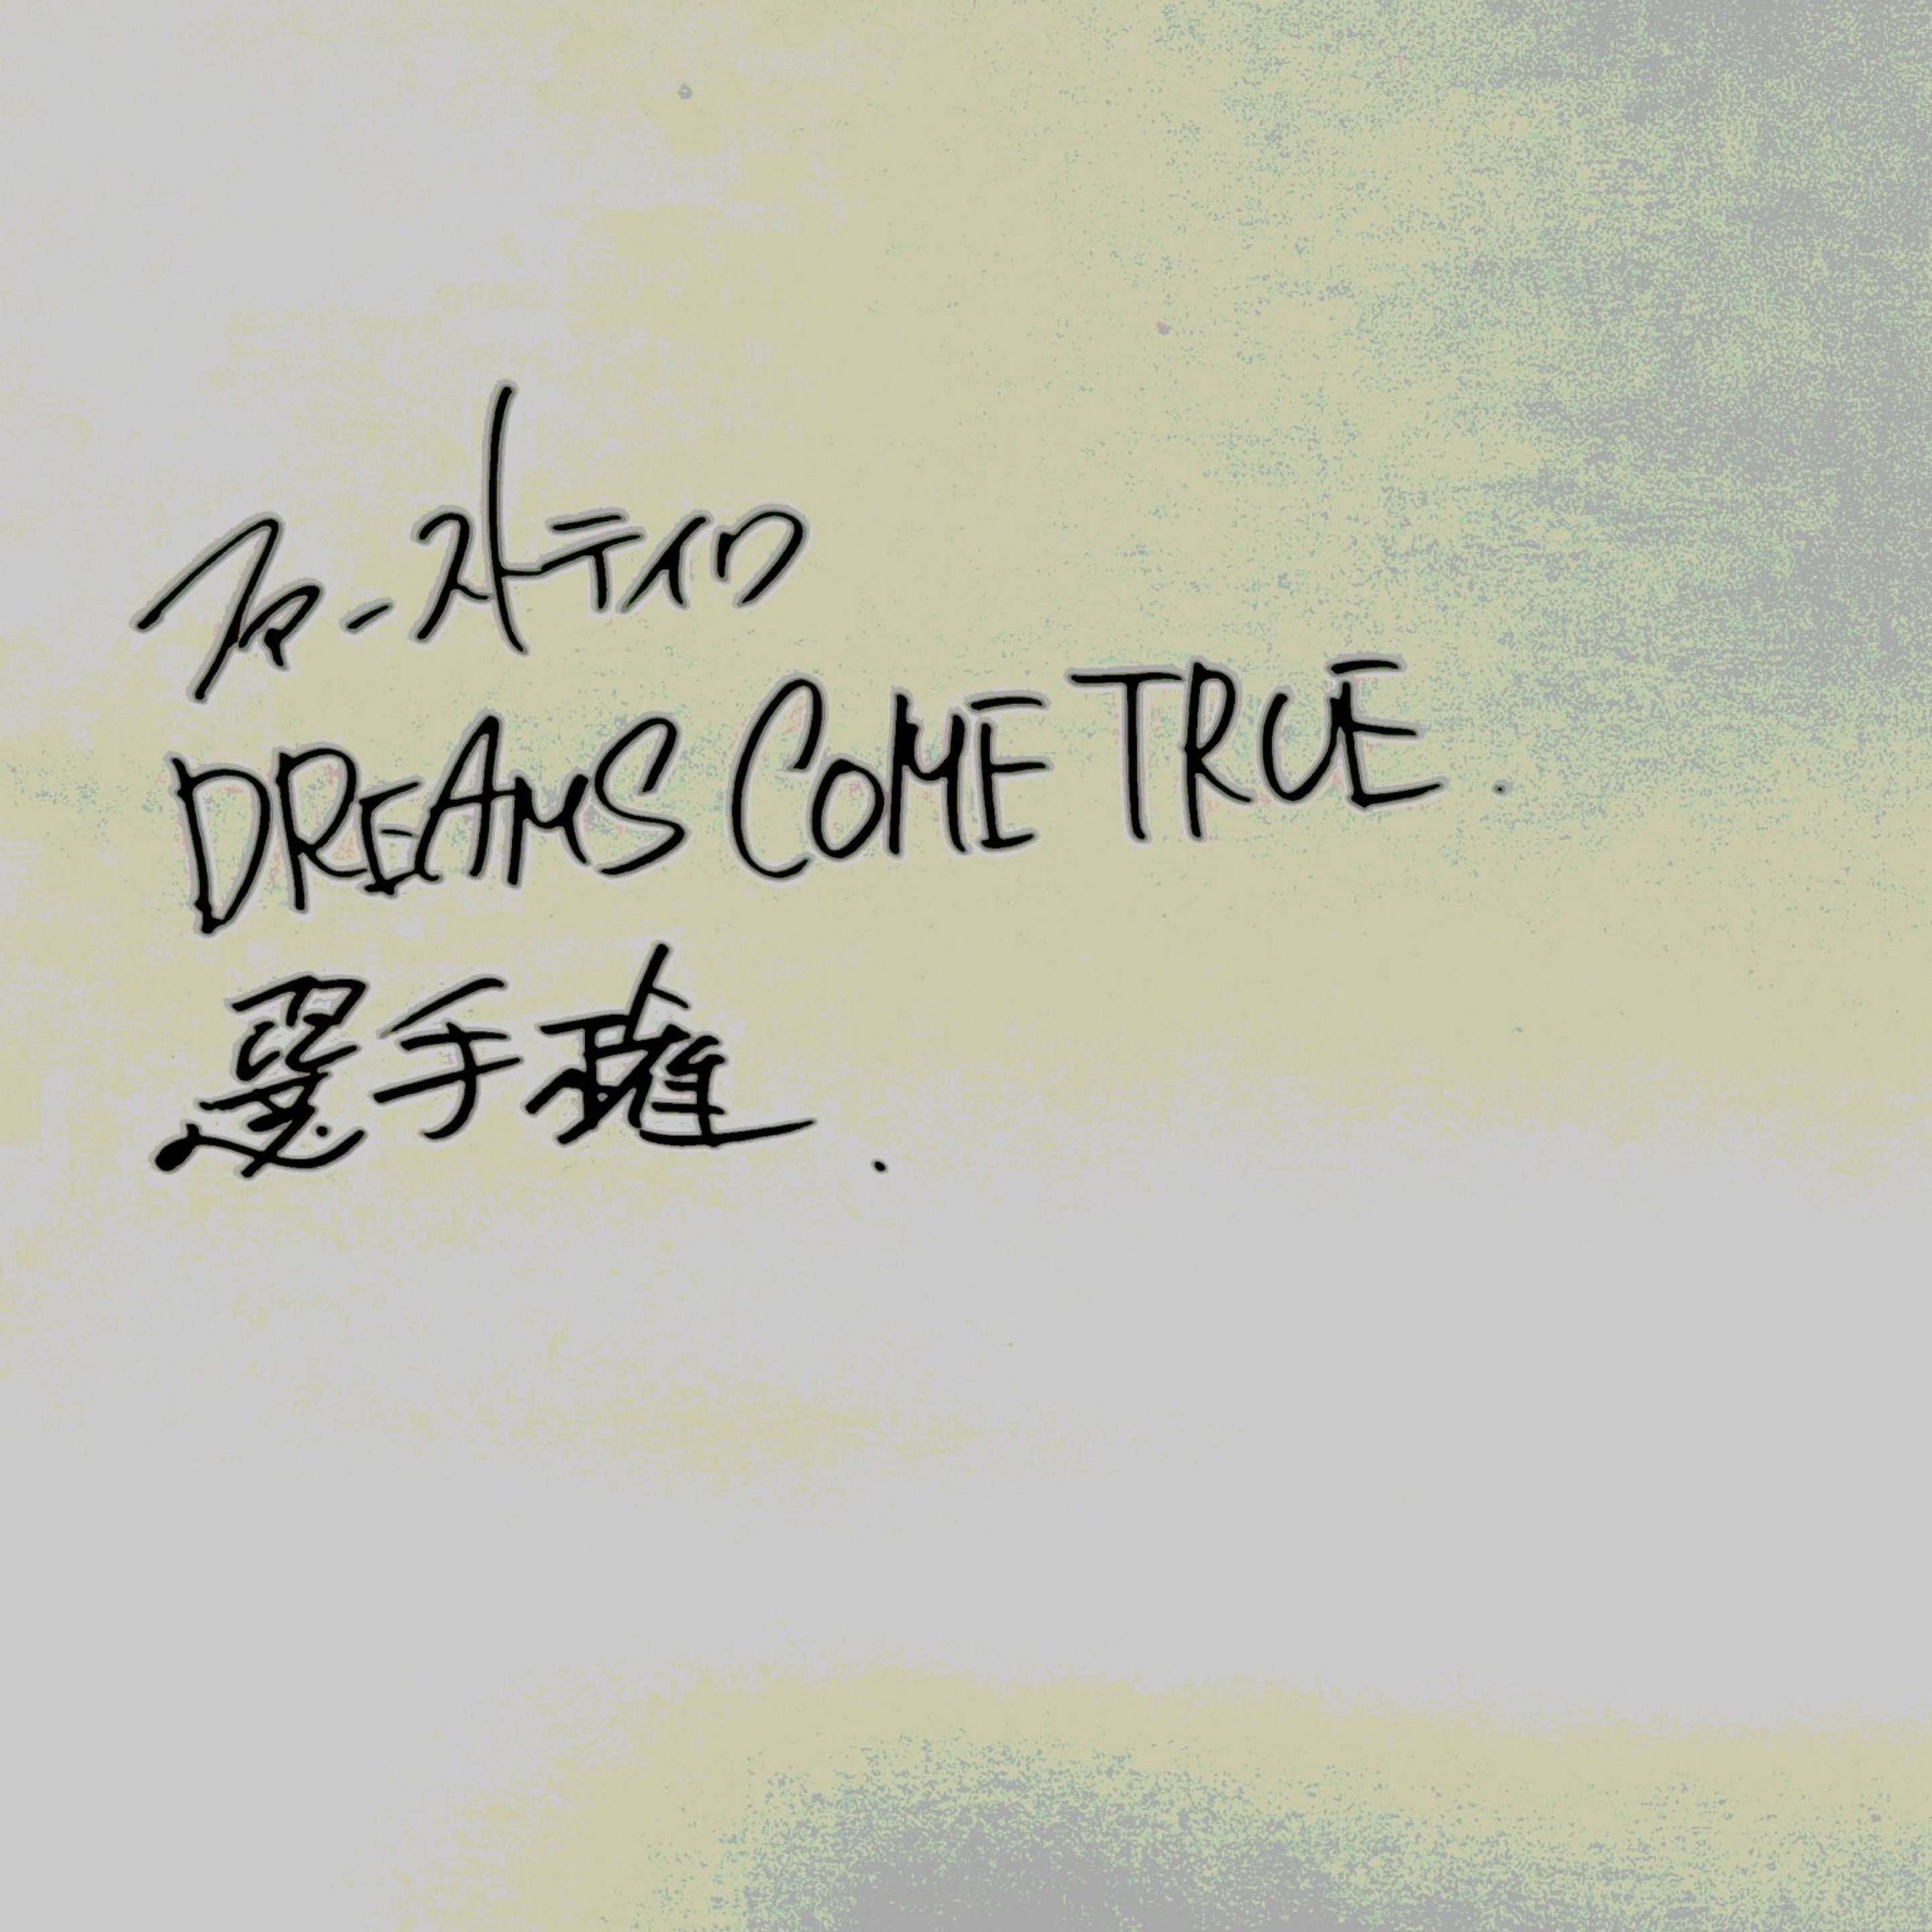 ファーストテイク
DREAMS COME TRUE.
選手権.